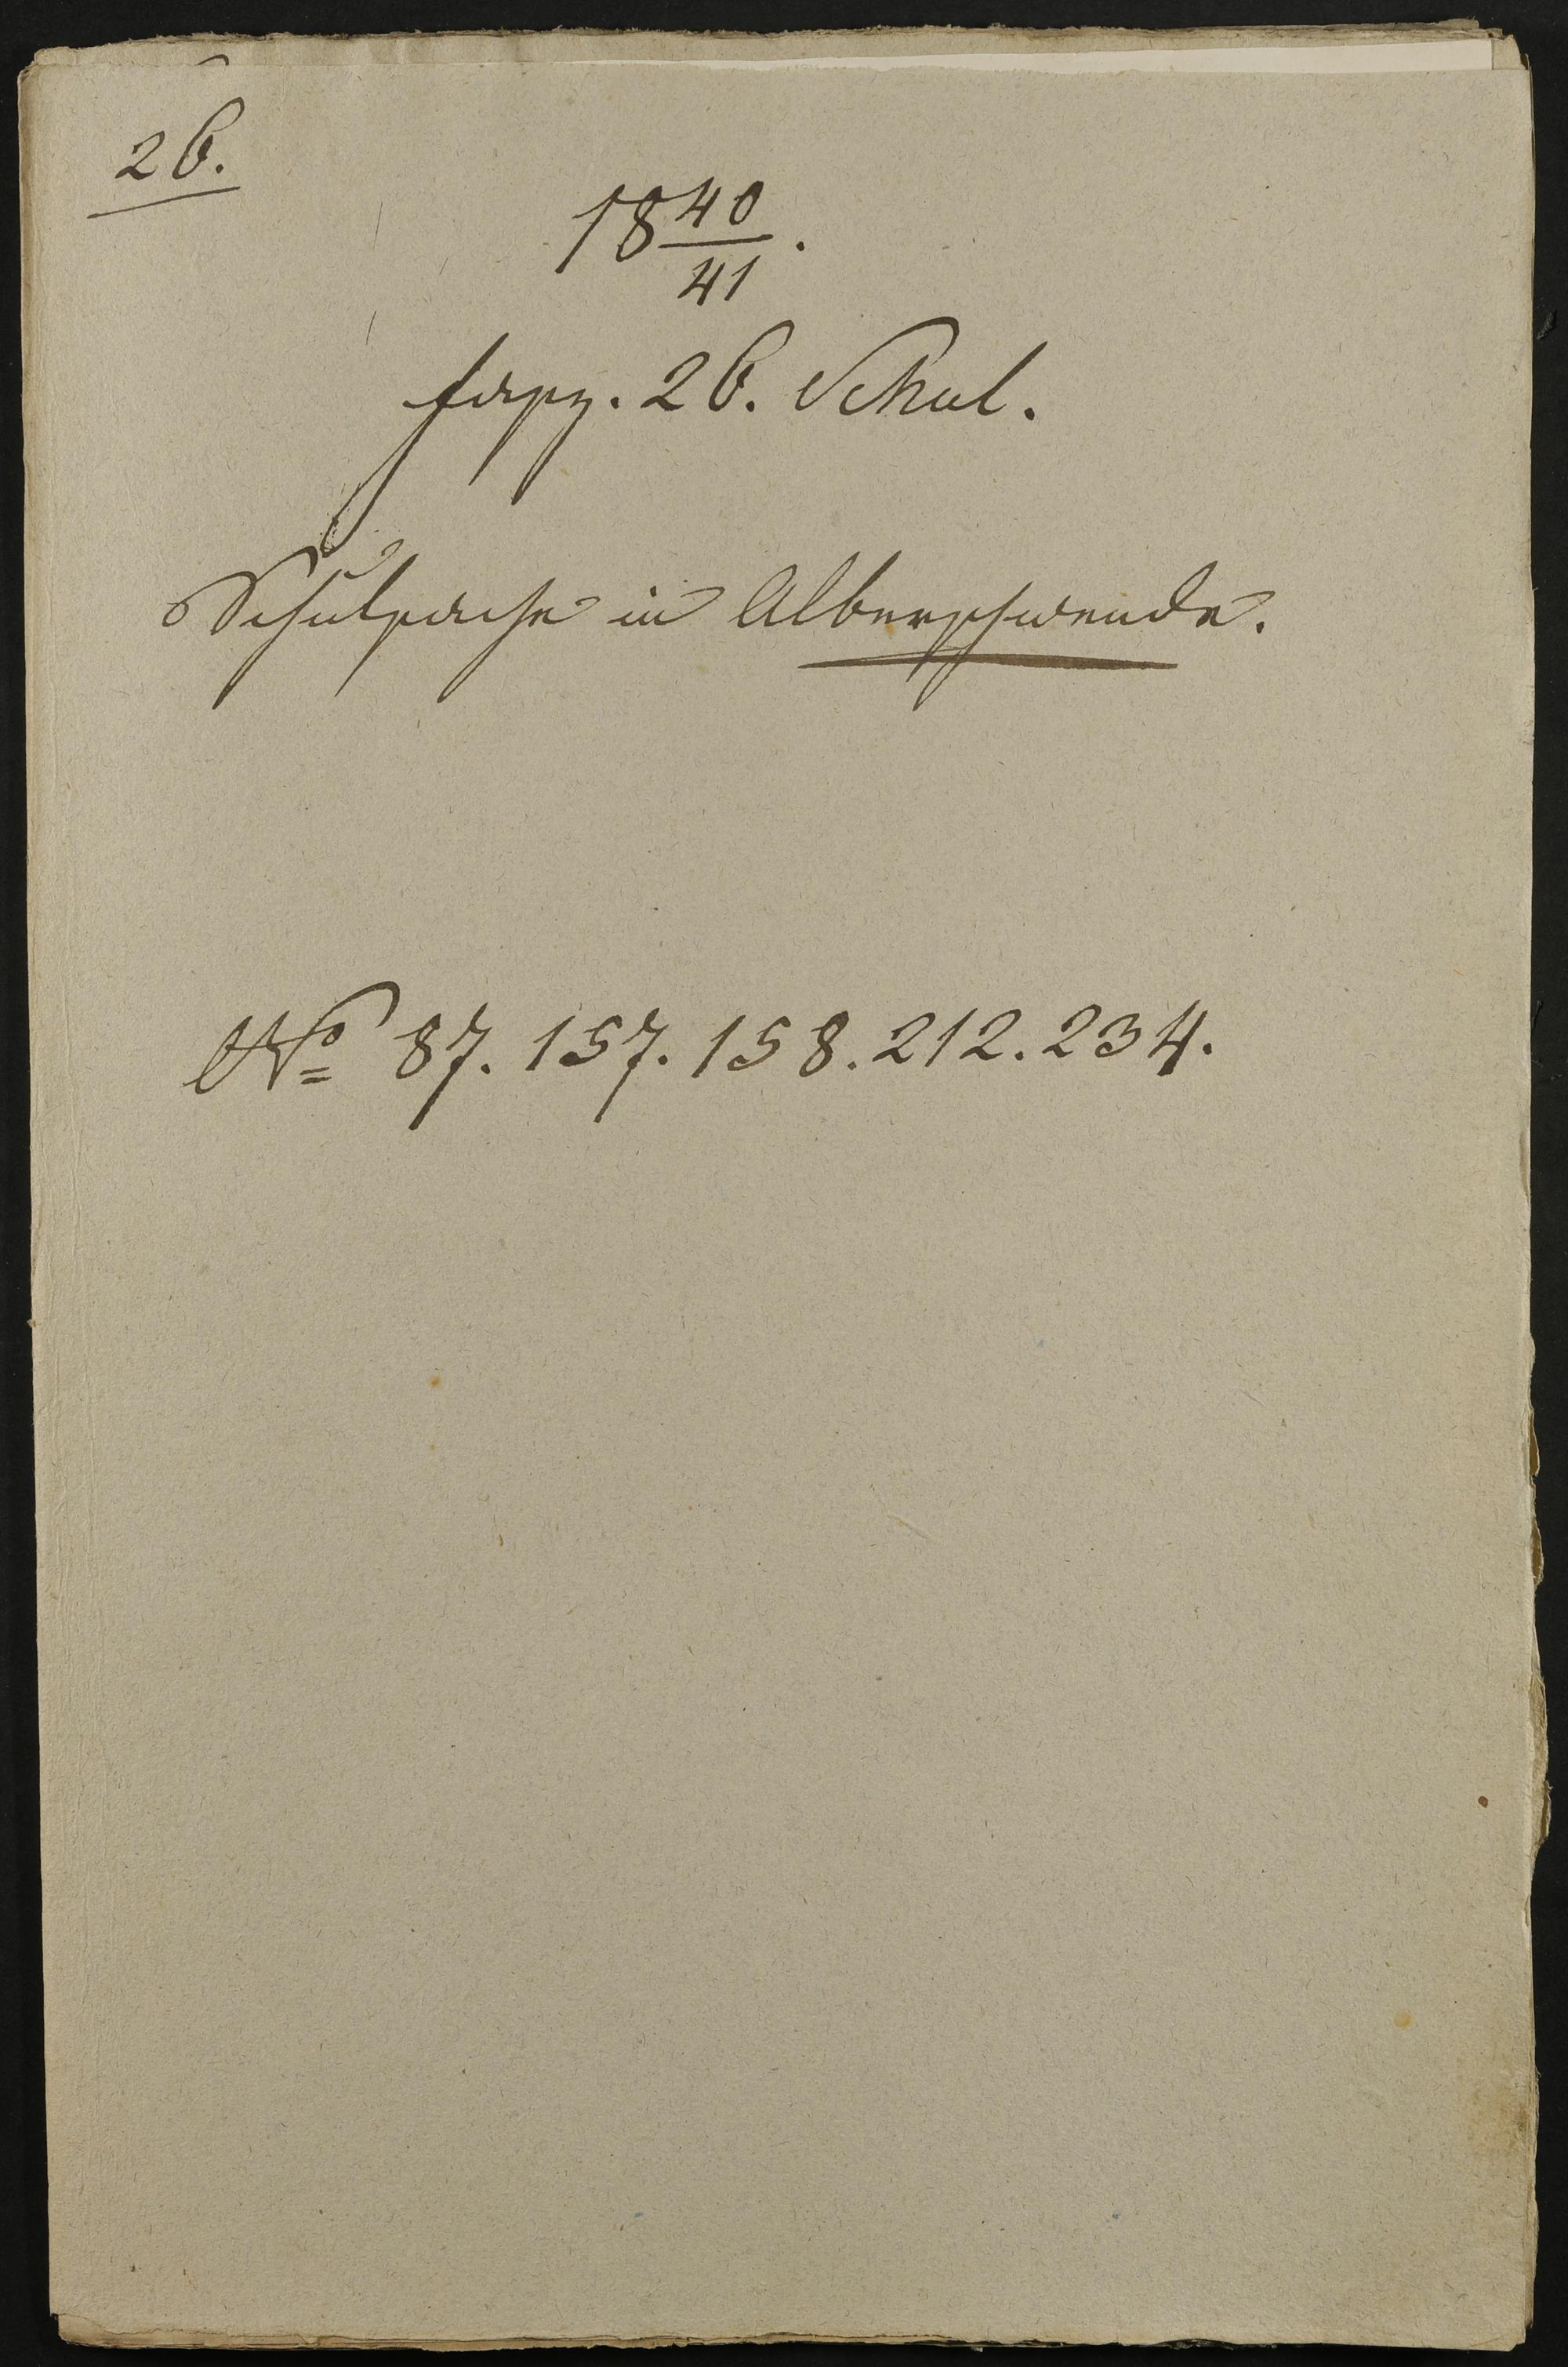 26.
18 40/41.
fasz. 26. Schul.
Schulsache in Alberschwende.
No 87. 157. 158. 212. 234.